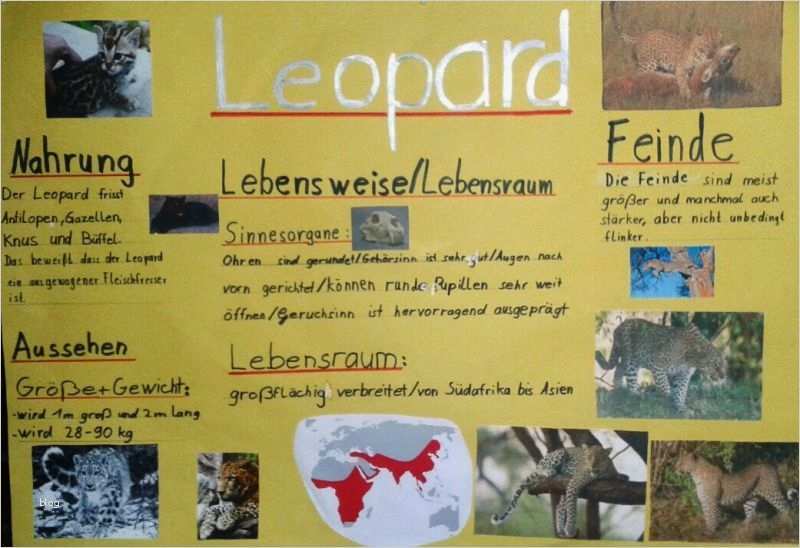 Leopard
Nahrung
Der Leopard frisst
Antilopen, Gazellen,
Knus und Büffel.
Das beweißt dass der Leopard
ein ausgewogener Fleischfresser
ist.
Aussehen
Größe + Gewicht:
-wird 1m groß und 2m lang
-wird 28-90 kg
Lebensweise/Lebensraum
Sinnesorgane:
Ohren sind gerundet/Gehörsinn ist sehr gut/Augen nach
vorn gerichtet/können runde Pupillen sehr weit
öffnen/Geruchsinn ist hervorragend ausgeprägt
Lebensraum:
großflächig verbreitet/von Südafrika bis Asien
Feinde
Die Feinde sind meist
größer und manchmal auch
stärker, aber nicht unbedingt
flinker.
blog.